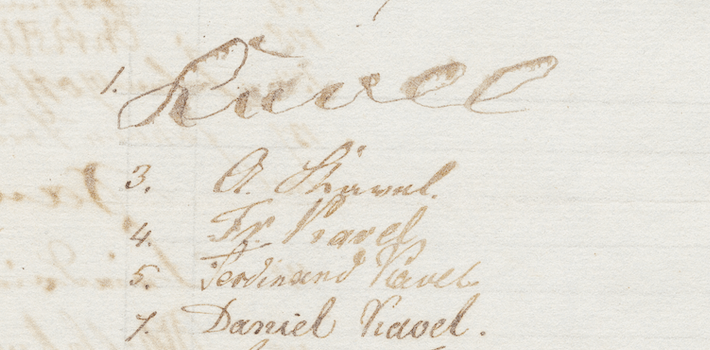 1. Kavel
3. A. Kavel.
4. Fr. Kavel
5. Ferdinand Kavel
7. Daniel Kavel.